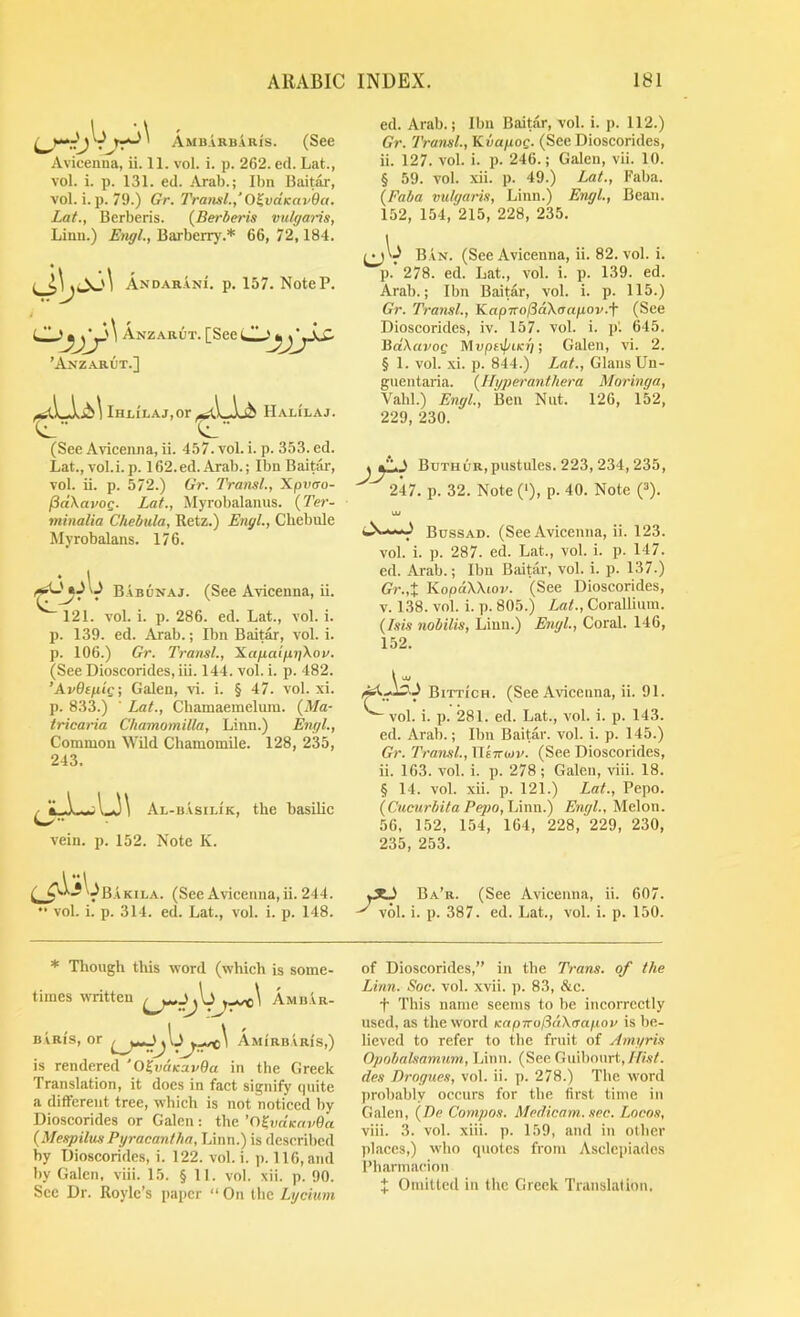 ARABIC INDEX. 181
امبرباريس AMBÁRBÁRÍS. (See
Avicenna, ii. 11. vol. i. p. 262. ed. Lat.,
vol. i. p. 131. ed. Arab.; Ibn Baitár,
vol. i. p. 79.) Gr. Transl., Ὀξυάκανθα.
Lat., Berberis. (Berberis vulgaris,
Linn.) Engl., Barberry.* 66, 72, 184.
اندراني ANDARÁNÍ. p. 157. Note P.
انزروت ANZARÚT. [See عنزروت
'ANZARÚT.]
اهليلج IHLÍLAJ, or هليلج HALÍLAJ.
(See Avicenna, ii. 457. vol. i. p. 353. ed.
Lat., vol. i. p. 162. ed. Arab.; Ibn Baitár,
vol. ii. p. 572.) Gr. Transl., Χρυσο-
βάλανος. Lat., Myrobalanus. (Ter-
minalia Chebula, Retz.) Engl., Chebule
Myrobalans. 176.
بابونج BÁBÚNAJ. (See Avicenna, ii.
121. vol. i. p. 286. ed. Lat., vol. i.
p. 139. ed. Arab.; Ibn Baitár, vol. i.
p. 106.) Gr. Transl., Χαμαίμηλον.
(See Dioscorides, iii. 144. vol. i. p. 482.
Ἀνθεμίς; Galen, vi. i. § 47. vol. xi.
p. 833.) Lat., Chamaemelum. (Ma-
tricaria Chamomilla, Linn.) Engl.,
Common Wild Chamomile. 128, 235,
243.
الباسليق AL-BÁSILÍK, the basilic
vein. p. 152. Note K.
باقلى BÁKILA. (See Avicenna, ii. 244.
vol. i. p. 314. ed. Lat., vol. i. p. 148.
ed. Arab.; Ibn Baitár, vol. i. p. 112.)
Gr. Transl., Κύαμος. (See Dioscorides,
ii. 127. vol. i. p. 246.; Galen, vii. 10.
§ 59. vol. xii. p. 49.) Lat., Faba.
(Faba vulgaris, Linn.) Engl., Bean.
152, 154, 215, 228, 235.
بان BÁN. (See Avicenna, ii. 82. vol. i.
p. 278. ed. Lat., vol. i. p. 139. ed.
Arab.; Ibn Baitár, vol. i. p. 115.)
Gr. Transl., Καρποβάλσαμον.† (See
Dioscorides, iv. 157. vol. i. p. 645.
Βάλανος Μυρεψική; Galen, vi. 2.
§ 1. vol. xi. p. 844.) Lat., Glans Un-
guentaria. (Hyperanthera Moringa,
Vahl.) Engl., Ben Nut. 126, 152,
229, 230.
بثور BUTHÚR, pustules. 223, 234, 235,
247. p. 32. Note (¹), p. 40. Note (³).
بسّد BUSSAD. (See Avicenna, ii. 123.
vol. i. p. 287. ed. Lat., vol. i. p. 147.
ed. Arab.; Ibn Baitár, vol. i. p. 137.)
Gr.,‡ Κοράλλιον. (See Dioscorides,
v. 138. vol. i. p. 805.) Lat., Corallium.
(Isis nobilis, Linn.) Engl., Coral. 146,
152.
بطّيخ BITTÍCH. (See Avicenna, ii. 91.
vol. i. p. 281. ed. Lat., vol. i. p. 143.
ed. Arab.; Ibn Baitár. vol. i. p. 145.)
Gr. Transl., Πέπων. (See Dioscorides,
ii. 163. vol. i. p. 278; Galen, viii. 18.
§ 14. vol. xii. p. 121.) Lat., Pepo.
(Cucurbita Pepo, Linn.) Engl., Melon.
56, 152, 154, 164, 228, 229, 230,
235, 253.
بعر BA'R. (See Avicenna, ii. 607.
vol. i. p. 387. ed. Lat., vol. i. p. 150.
* Though this word (which is some-
times written امبرباريس AMBÁR-
BÁRÍS, or اميرباريس AMÍRBÁRÍS,)
is rendered Ὀξυάκανθα in the Greek
Translation, it does in fact signify quite
a different tree, which is not noticed by
Dioscorides or Galen: the Ὀξυάκανθα
(Mespilus Pyracantha, Linn.) is described
by Dioscorides, i. 122. vol. i. p. 116, and
by Galen, viii. 15. § 11. vol. xii. p. 90.
See Dr. Royle's paper "On the Lycium
of Dioscorides," in the Trans. of the
Linn. Soc. vol. xvii. p. 83, &c.
† This name seems to be incorrectly
used, as the word καρποβάλσαμον is be-
lieved to refer to the fruit of Amyris
Opobalsamum, Linn. (See Guibourt, Hist.
des Drogues, vol. ii. p. 278.) The word
probably occurs for the first time in
Galen, (De Compos. Medicam. sec. Locos,
viii. 3. vol. xiii. p. 159, and in other
places,) who quotes from Asclepiades
Pharmacion
‡ Omitted in the Greek Translation.